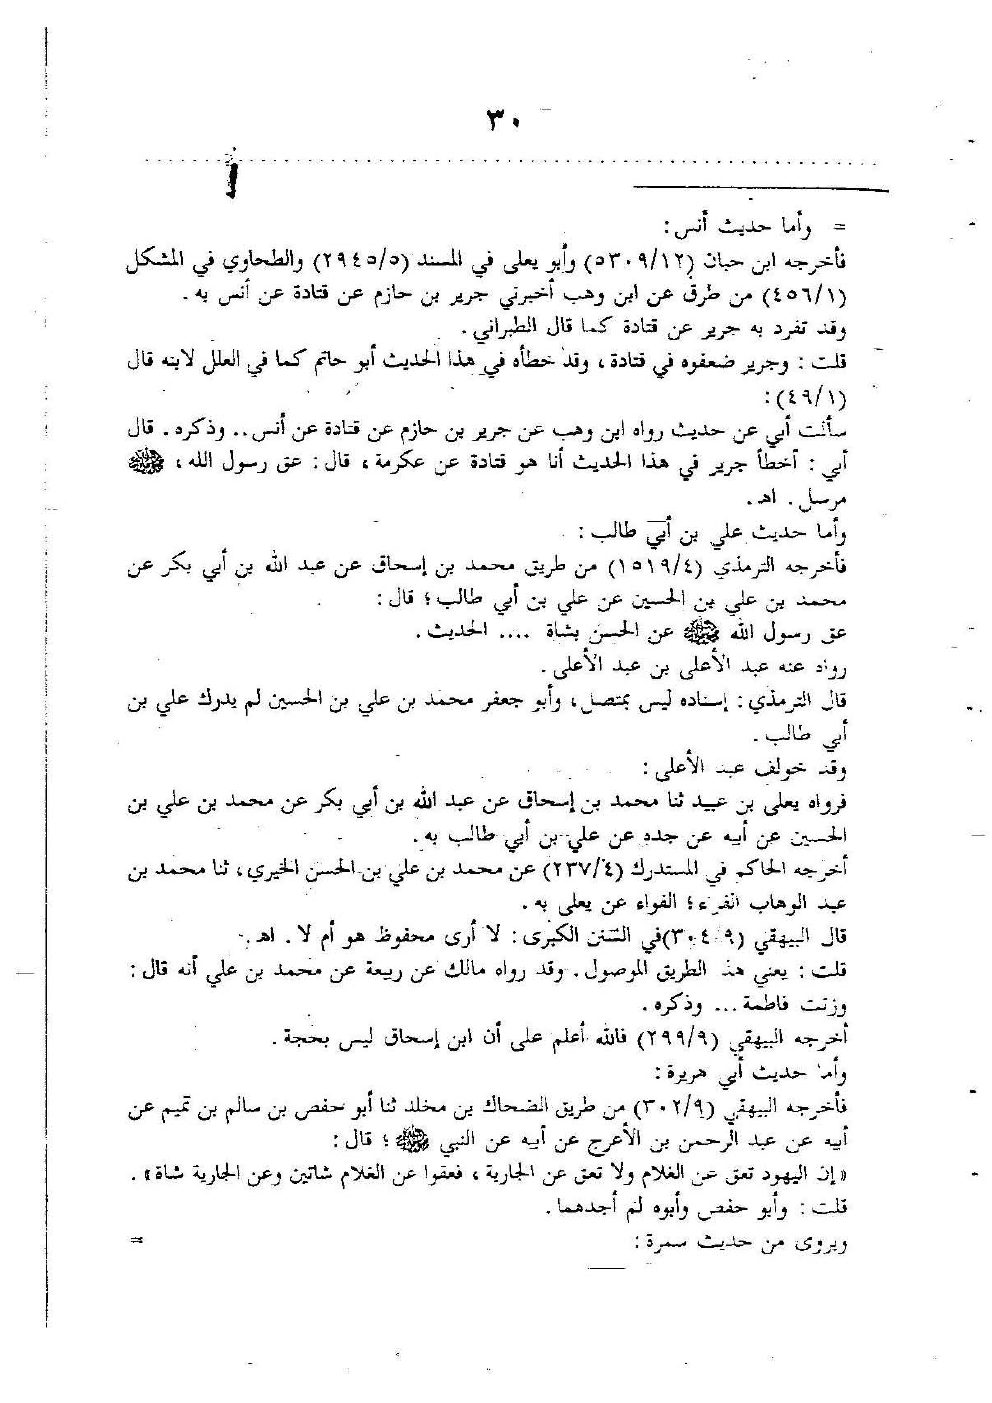 ٣٠
= وأما حديث أنس :
فأخرجه ابن حبان (٥٣٠٩/١٢) وأبو يعلى في المسند (٢٩٤٥/٥) والطحاوي في المشكل
(٤٥٦/١) من طرق عن ابن وهب أخبرني جرير بن حازم عن قتادة عن أنس به .
وقد تفرد به جرير عن قتادة كما قال الطبراني .
قلت : وجرير ضعفوه في قتادة ، وقد خطأه في هذا الحديث أبو حاتم كما في العلل لابنه قال
(٤٩/١) :
سألت أبي عن حديث رواه ابن وهب عن جرير بن حازم عن قتادة عن أنس .. وذكره . قال
أبي : أخطأ جرير في هذا الحديث أنا هو قتادة عن عكرمة ، قال : عق رسول الله ، ﷺ
مرسل . اهـ .
وأما حديث علي بن أبي طالب :
فأخرجه الترمذي (١٥١٩/٤) من طريق محمد بن إسحاق عن عبد الله بن أبي بكر عن
محمد بن علي بن الحسين عن علي بن أبي طالب ؛ قال :
عق رسول الله ﷺ عن الحسن بشاة .... الحديث .
رواه عنه عبد الأعلى بن عبد الأعلى .
قال الترمذي : إسناده ليس بمتصل ، وأبو جعفر محمد بن علي بن الحسين لم يدرك علي بن
أبي طالب .
وقد خولف عبد الأعلى :
فرواه يعلى بن عبيد ثنا محمد بن إسحاق عن عبد الله بن أبي بكر عن محمد بن علي بن
الحسين عن أبيه عن جده عن علي بن أبي طالب به .
أخرجه الحاكم في المستدرك (٢٣٧/٤) عن محمد بن علي بن الحسن الخيري ، ثنا محمد بن
عبد الوهاب الفراء ؛ الفواء عن يعلى به .
قال البيهقي (٣٠٤/٩) في السنن الكبرى : لا أرى محفوظ هو أم لا . اهـ .
قلت : يعني هذ الطريق الموصول . وقد رواه مالك عن ربيعة عن محمد بن علي أنه قال :
وزنت فاطمة ... وذكره .
أخرجه البيهقي (٢٩٩/٩) فالله أعلم على أن ابن إسحاق ليس بحجة .
وأما حديث أبي هريرة :
فأخرجه البيهقي (٣٠٢/٩) من طريق الضحاك بن مخلد ثنا أبو حفص بن سالم بن تميم عن
أبيه عن عبد الرحمن بن الأعرج عن أبيه عن النبي ﷺ ؛ قال :
« إن اليهود تعق عن الغلام ولا تعق عن الجارية ، فعقوا عن الغلام شاتين وعن الجارية شاة » .
قلت : وأبو حفص وأبوه لم أجدهما .
ويروى من حديث سمرة : =